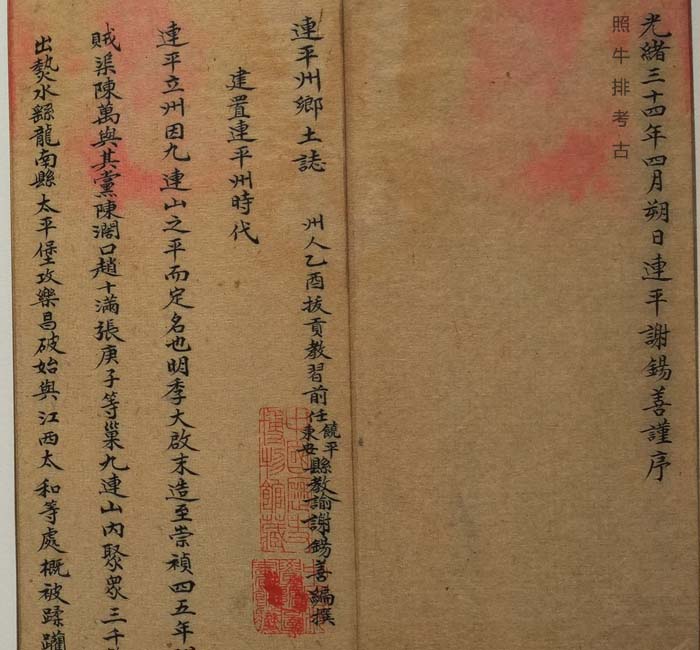 光緒三十四年四月朔日連平謝錫善謹序
照牛排考古
連平州鄉土誌 州人乙酉拔貢教習前任饒平東安縣教諭謝錫善編撰
建置連平州時代
連平立州因九連山之平而定名也明季大啟末造至崇禎四五年間
賊渠陳萬與其黨陳濶口趙十滿張庚子等巢九連山內聚眾三千
出𤏡水縣龍南縣太平堡攻樂昌破始興江西太和等處概被蹂躪